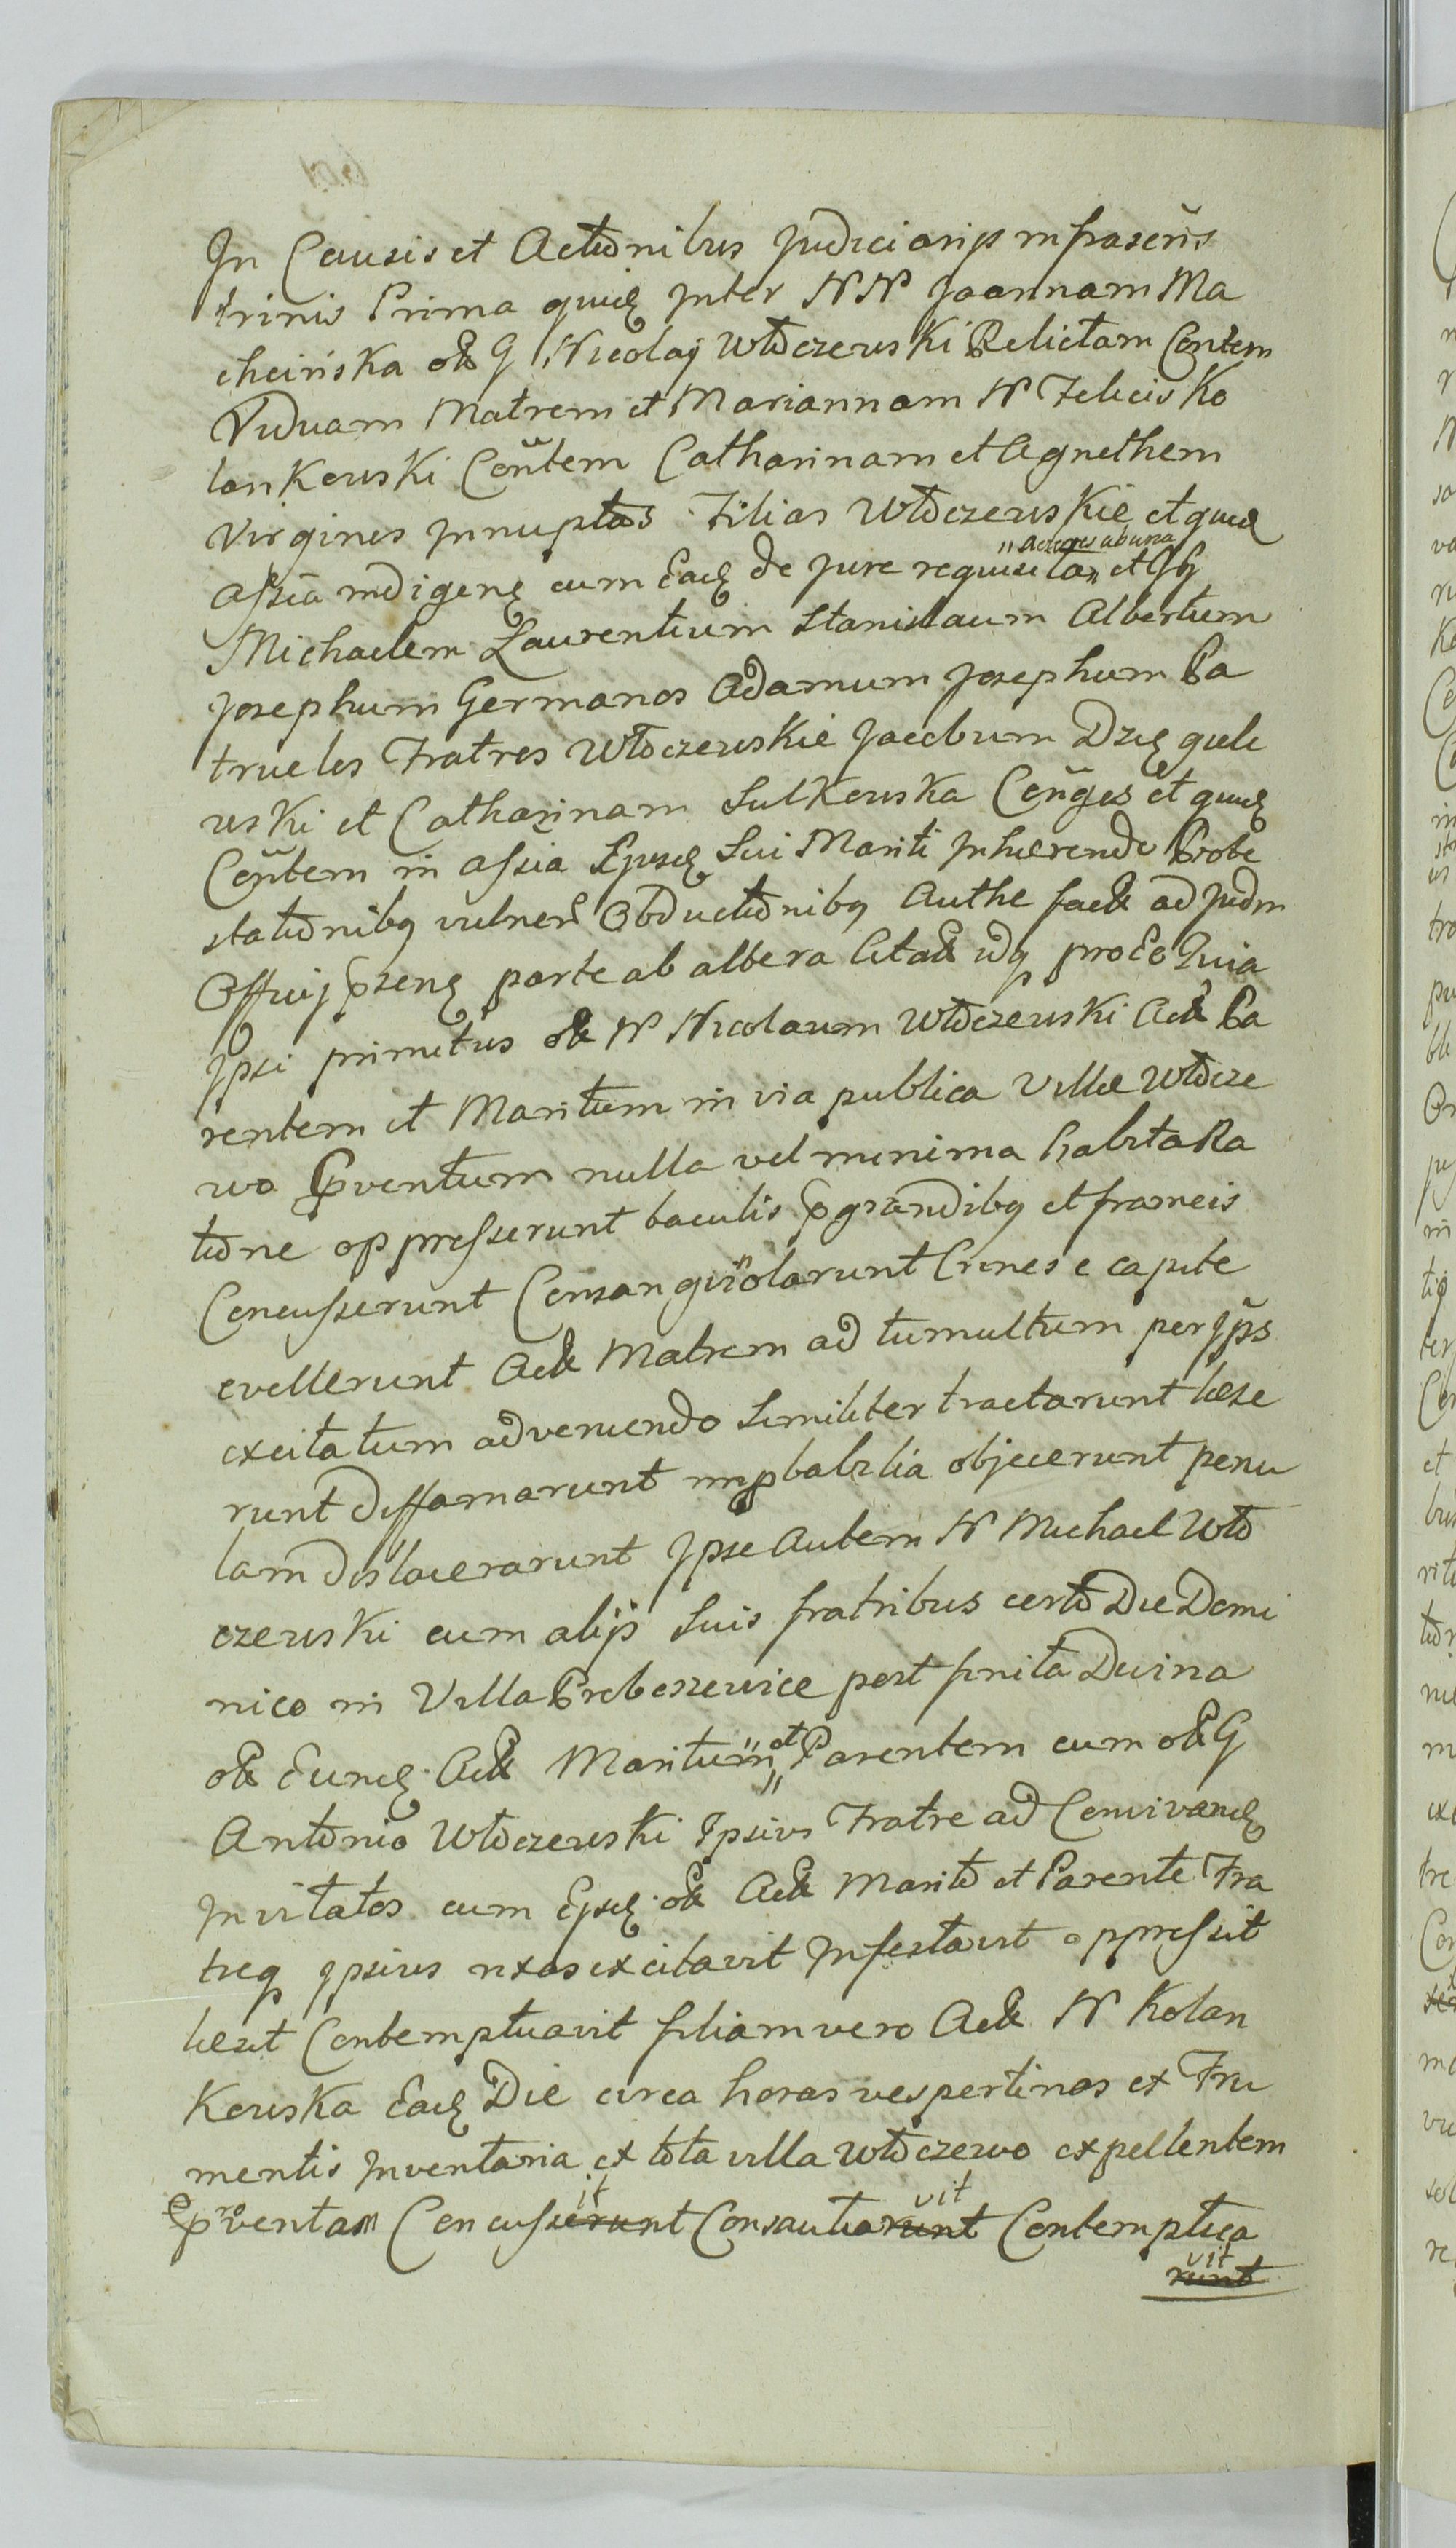 In Causis et Actionibus Judiciarijs infrascris
trinis Prima quid inter NN Joannam Ma
cheińska olim G Nicolaj Włoczewski Relictam Contem
Viduam Matrem et Mariannam N Felicis Ko
lankowski Contem Catharinam et Agnethem
Virgines Innuptas Filias Włoczewskie et quid
assia indigen cum Ead de jure requisita „actores ab una„ et GG
Michaelem Laurentium Stanislaum Albertum
Josephum Germanos Adamum Josephum Pa
trueles Fratres Włoczewskie Jacobum Dzięgiele
wski et Catharinam Sulkowska Conges et quid
Contem in assia Ejusd Sui Mariti Inhærendo Prote
stationibq vulner Obductionibq Authe fact ad Judm
Officij psens parte ab altera Citat idq pro Eo Quia
Ipsi primitus olim N Nicolaum Włoczewski Act Pa
rentem et Maritum in via publica Villæ Włocze
wo pventum nulla vel minima habita Ra
tione oppresserunt baculis pgrandibq et frameis
Concusserunt Consanguiolarunt Crines e capite
evellerunt Act Matrem ad tumultum per Ips
excitatum adveniendo Similiter tractarunt læse
runt diffamarunt impbabilia objecerunt penu
lam dislacerarunt Ipse Autem N Michael Wło
czewski cum alijs Suis fratribus certo Die Domi
nico in Villa Proboszewice post finita Divina
olim Eund Act Maritum „et„ Parentem cum olim G
Antonio Włoczewski Ipsius Fratre ad Convivand
Invitatos cum Ejusd olim Act Marito et Parente Fra
treq ipsius rixas excitavit Infestavit oppressit
læsit Contemptuavit filiam vero Act N Kolan
kowska Ead Die circa horas vespertinas ex Fru
mentis Inventaria ex tota villa Włoczewo expellentem
proventam Concusserunt it Consautiarunt vit Contemptua
runt vit